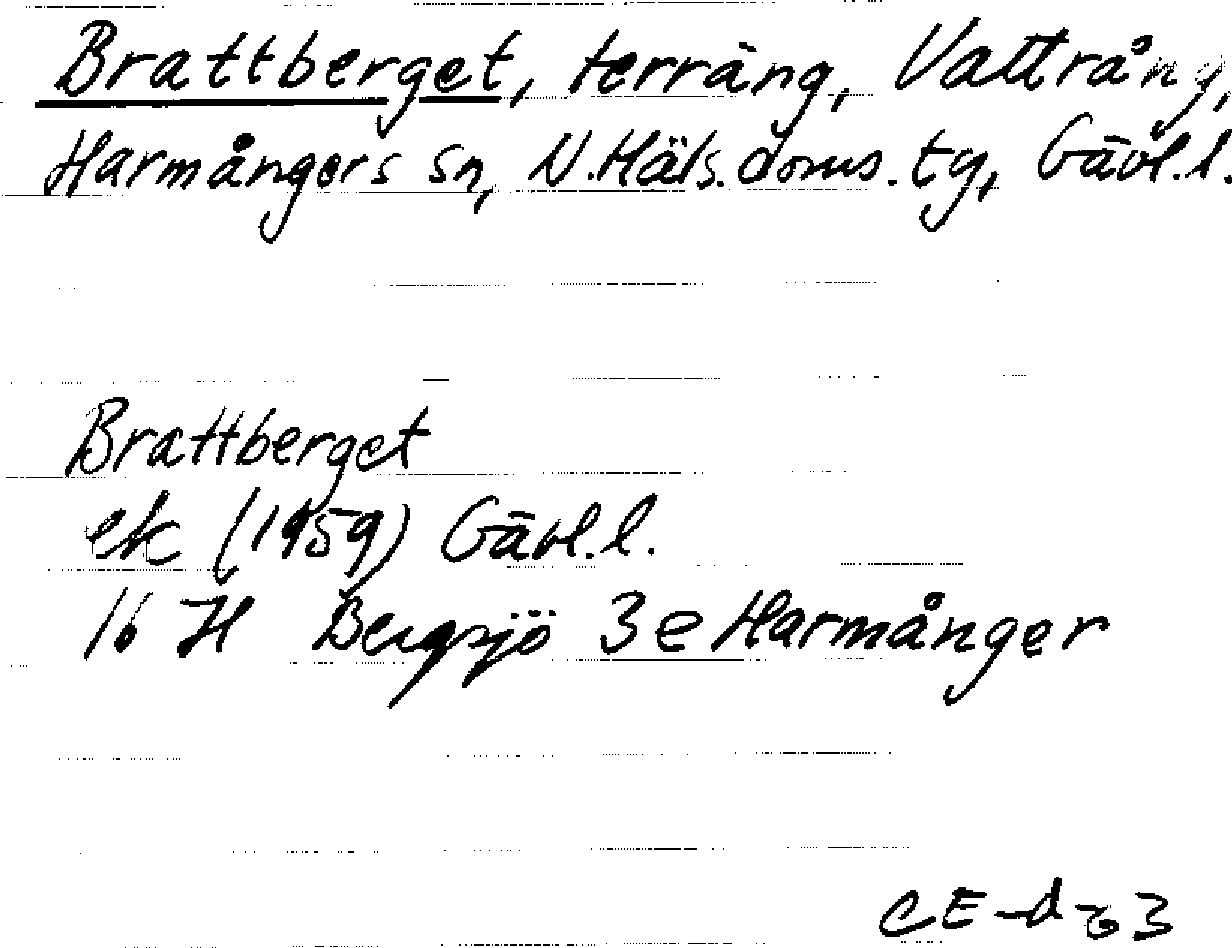 Brattberget, terräng, Vattrång,
Harmångers sn, N.Häls.doms.ty, Gävl.l.
Brattberget
ek (1959) Gävl.l.
16 H Bergsjö 3e Harmånger
CE-d 63